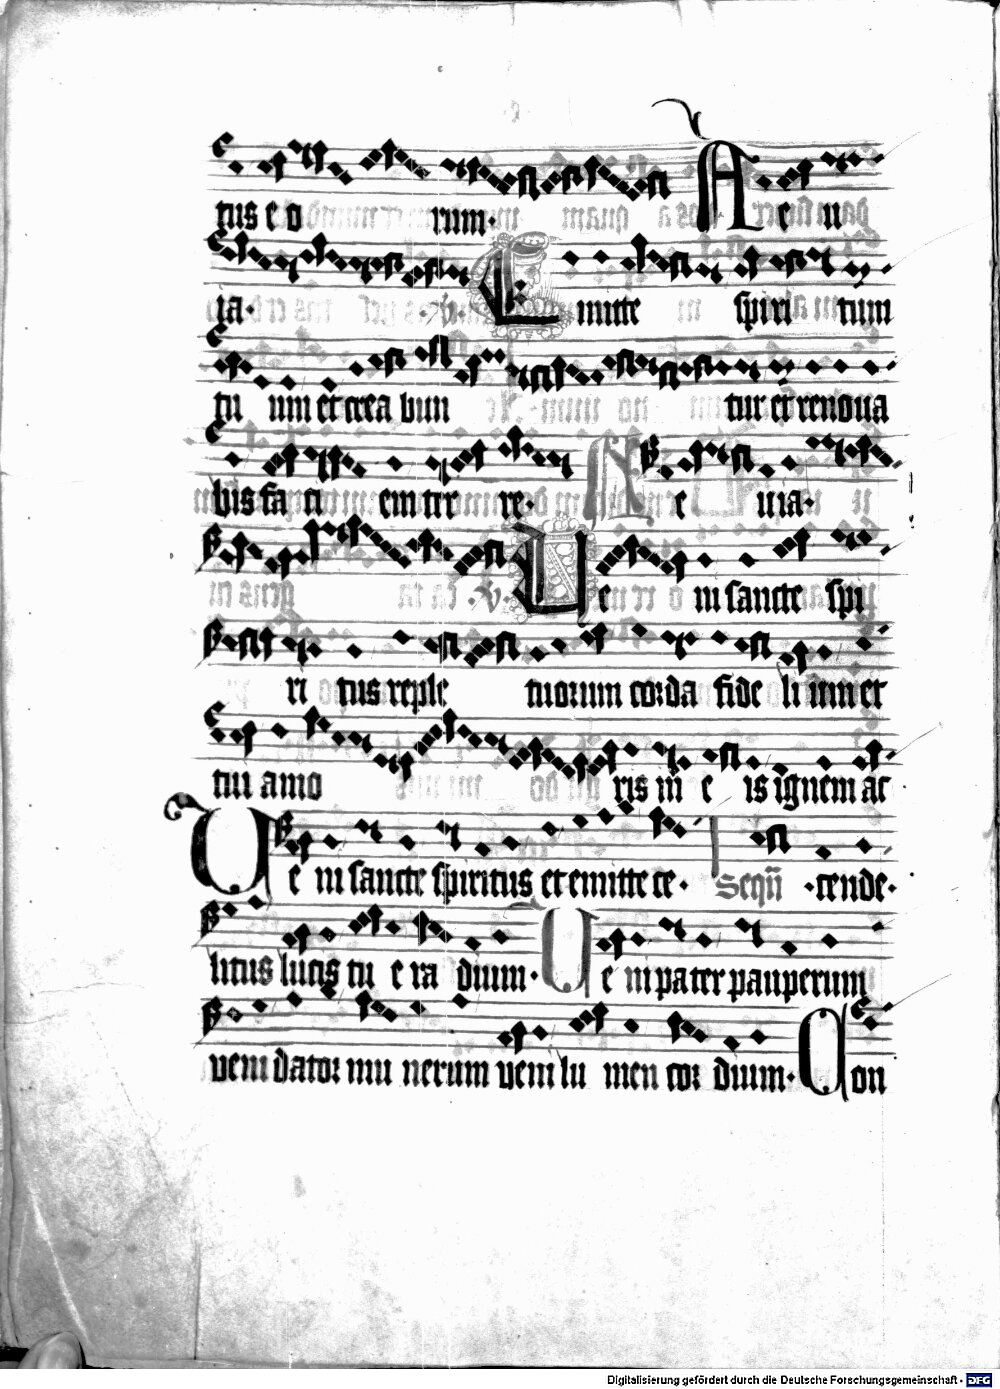 tus e o rum· A e u
ia· E mitte spiri tum
tu um et crea bun tur et renoua
bis fa ci em ter re· A e uia·
U e ni sancte spi
ri tus reple tuorum corda fide li um et
tui amo ris in e is ignem ac
U e ni sancte spiritus et emitte ce· Seqū ·cende·
litus lucis tu e ra dium· U e ni pa ter pauperum
veni dator mu nerum veni lu men cor dium· C on
Digitalisierung gefördert durch die Deutsche Forschungsgemeinschaft · DFG